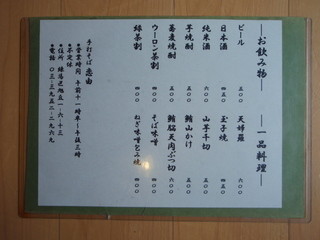 ―お飲み物―
ビール 五〇〇
日本酒 四五〇
純米酒 六〇〇
芋焼酎 五〇〇
蕎麦焼酎 五〇〇
ウーロン茶割 四〇〇
緑茶割 四〇〇
―一品料理―
天婦羅
玉子焼 四五〇
山芋千切 四〇〇
鮪山かけ 五〇〇
鮪脳天肉ぶつ切 六〇〇
そば味噌 四〇〇
ねぎ味噌包み焼 四〇〇
手打そば
●営業時間 午前十一時半~午後三時
●不定休
●住所 練馬区旭丘一・六・十三
●電話 〇三・三九五二・二九六九